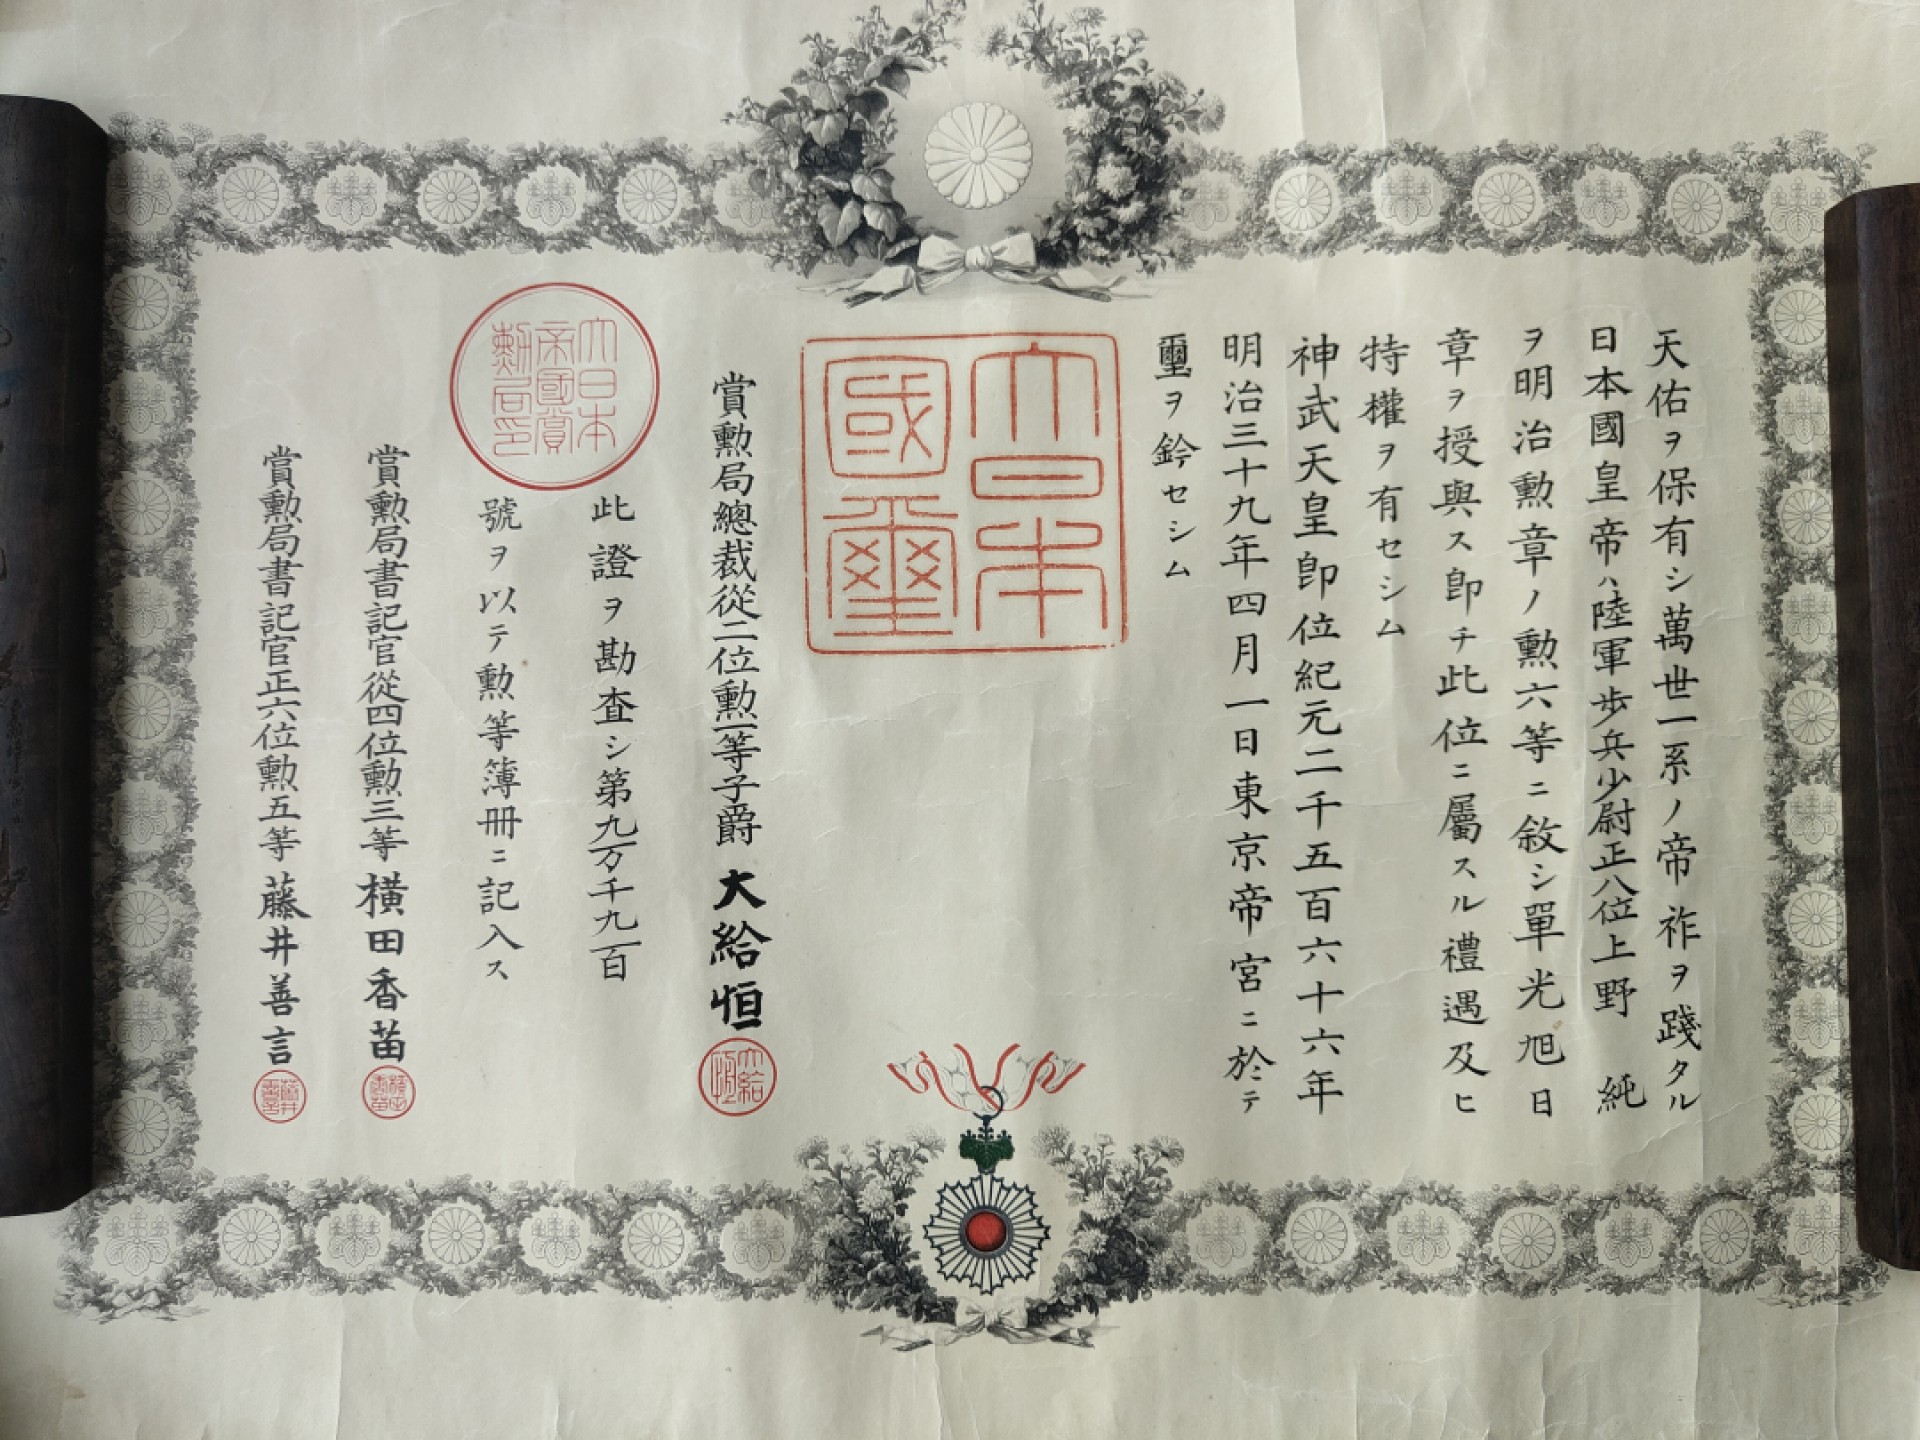 天佑ヲ保有シ萬世一系ノ帝祚ヲ踐タル
日本國皇帝ハ陸軍歩兵少尉正八位上野 純
ヲ明治勲章ノ勲六等ニ敘シ單光旭日
章ヲ授與ス即チ此位ニ屬スル禮遇及ヒ
特權ヲ有セシム
神武天皇即位紀元二千五百六十六年
明治三十九年四月一日東京帝宮ニ於テ
璽ヲ鈐セシム
大日本
國璽
賞勲局總裁從二位勲一等子爵 大給恒
大給恒
此證ヲ勘査シ第九万千九百
號ヲ以テ勲等簿冊ニ記入ス
大日本
帝國賞
勲局印
賞勲局書記官從四位勲三等 横田香苗
横田香苗
賞勲局書記官正六位勲五等 藤井善言
藤井善言